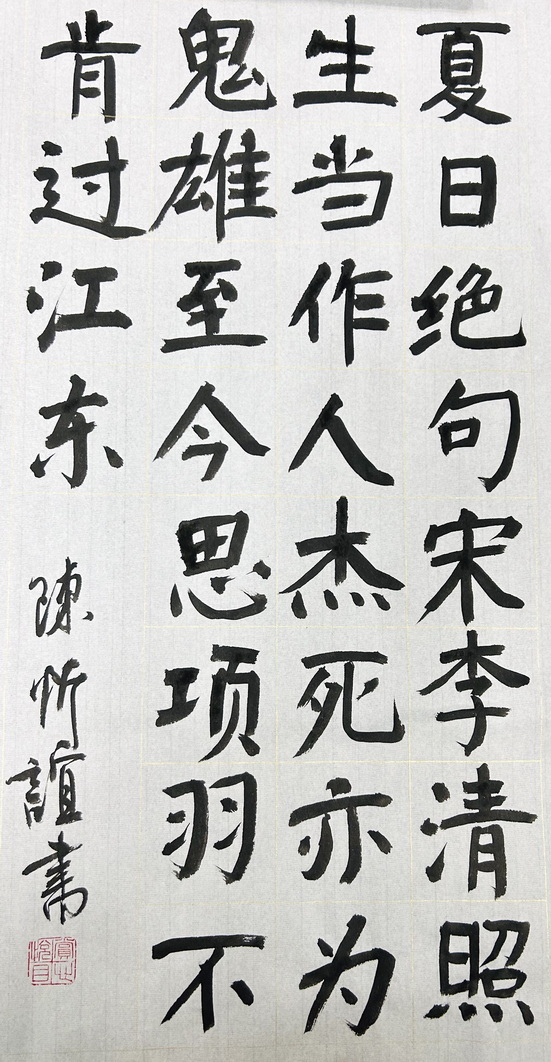 夏日绝句宋李清照
生当作人杰死亦为
鬼雄至今思项羽不
肯过江东
陳忻誼书